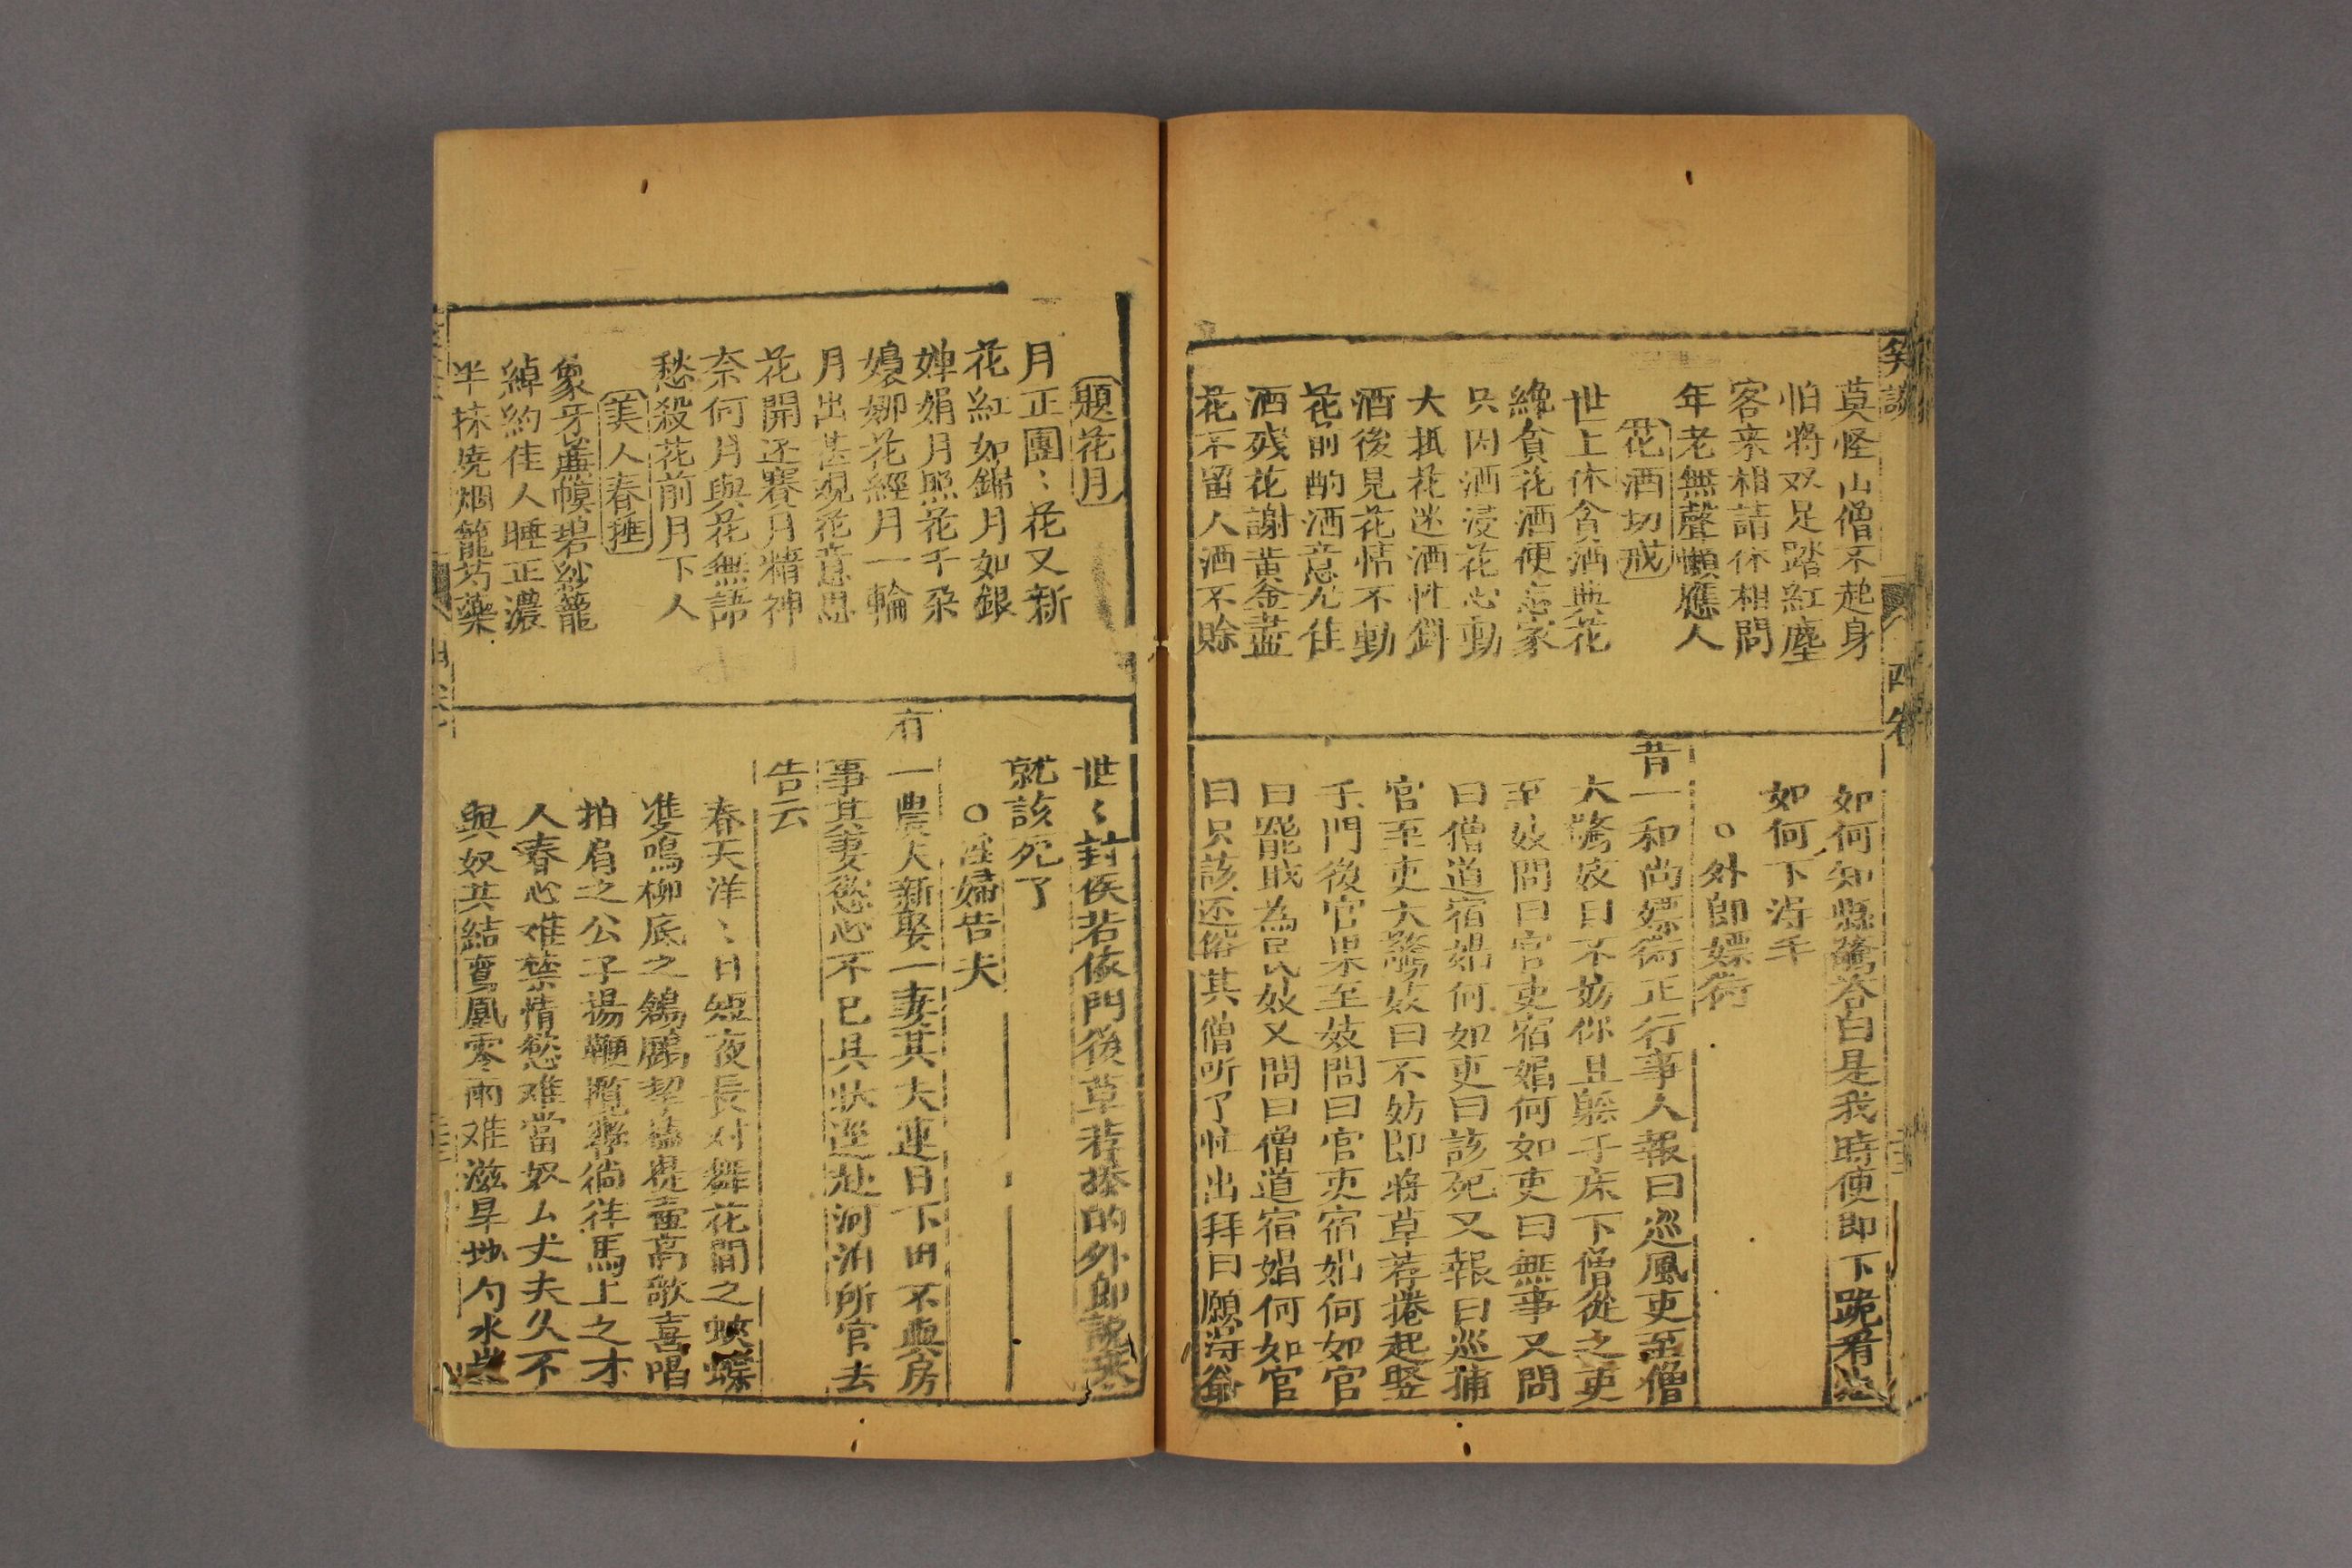 莫怪山僧不起身
怕將双足踏紅塵
客來相請休相問
年老無聲懶應人
花酒切戒
世上休貪酒與花
纔貪花酒便忘家
只因酒浸花心動
大抵花迷酒性斜
酒後見花情不動
花前酌酒意尤佳
酒残花謝黄金盡
花不留人酒不賒
如何知縣驚答曰是我時便即下跪看他
如何下得手
○外郎嫖術
昔一和尚嫖術正行事人報曰巡風吏至僧
大驚妓曰不妨你且躲于床下僧從之吏
至妓問曰官吏宿娼何如吏曰無事又問
曰僧道宿娼何如吏曰該死又報曰巡捕
官至吏大驚妓曰不妨即將草荐捲起竪
于門後官果至妓問曰官吏宿娼何如官
曰罷職為民妓又問曰僧道宿娼何如官
曰只該还俗其僧听了忙出拜曰願得爺
題花月
月正團〻花又新
花紅如錦月如銀
嬋娟月照花千朶
嬝娜花經月一輪
月出甚观花意思
花開还賽月精神
奈何月與花無語
愁殺花前月下人
美人春捱
象牙簟幙碧紗籠
綽約佳人睡正濃
半抹曉烟籠芍藥
世〻封侯若依門後草荐捲的外郎說來
就該死了
○淫婦告夫
有一農夫新娶一妻其夫連日下田不與房
事其妻慾心不已具狀逕赴河泊所官去
告云
春天洋〻日短夜長对舞花間之蛺蝶
雙鳴柳底之鶺鴒挈榼提壺高歌喜唱
拍肩之公子揚鞭覽轡徜徉馬上之才
人春心难禁情慾难當奴厶丈夫久不
與奴共結鸞鳳零雨难滋旱地勺水